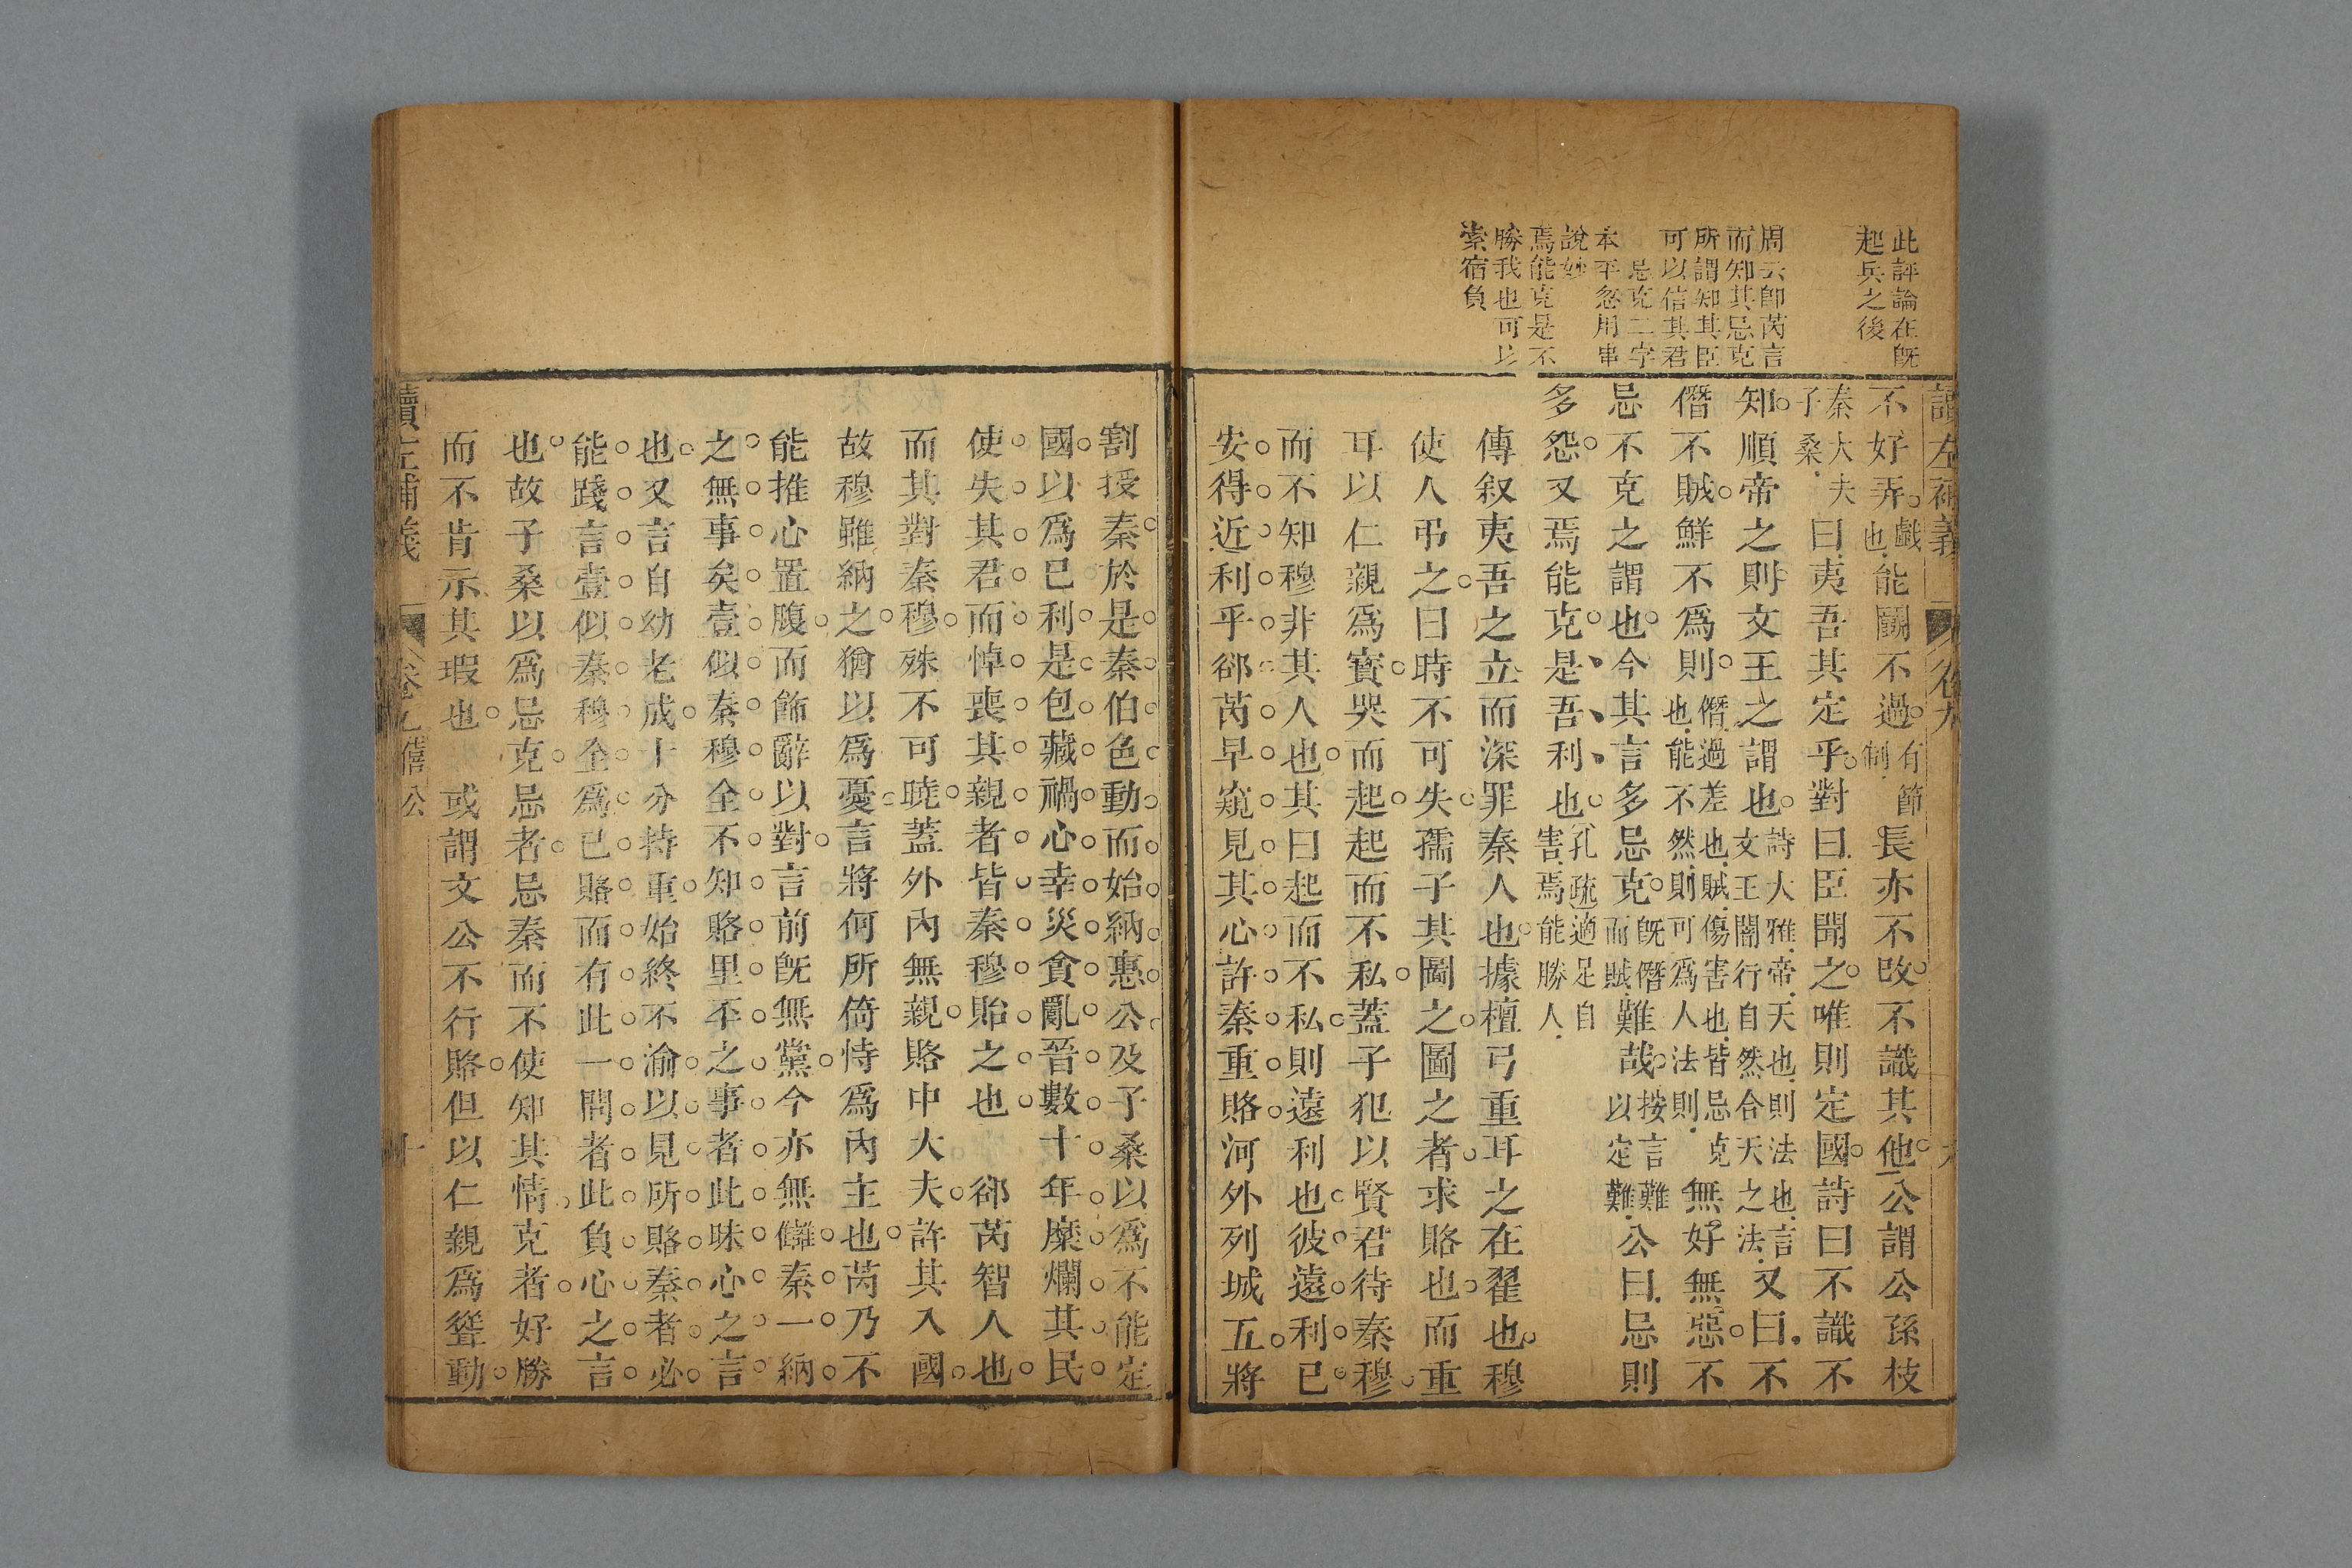 此評論在既
起兵之後
周云卽芮言
而知其忌克
所謂知其臣
可以信其君
忌克二字
本平忽用串
說妙
焉能克是不
勝我也可以
索宿負
讀左補義 卷九
不好弄戲也能鬭不過有節制長亦不改不識其他公謂公孫枝
秦大夫子桑曰夷吾其定乎對曰臣聞之唯則定國詩曰不識不
知順帝之則文王之謂也詩大雅帝天也則法也言文王闇行自然合天之法又曰不
僭不賊鮮不爲則僭過差也賊傷害也皆忌克也能不然則可爲人法則無好無惡不
忌不克之謂也今其言多忌克既僭而賊難哉按言難以定難公曰忌則
多怨又焉能克是吾利也孔疏適足自害焉能勝人
傳叙夷吾之立而深罪秦人也據檀弓重耳之在翟也穆
使人弔之曰時不可失孺子其圖之圖之者求賂也而重
耳以仁親爲寳哭而起起而不私蓋子犯以賢君待秦穆
而不知穆非其人也其曰起而不私則遠利也彼遠利已
安得近利乎郤芮早窺見其心許秦重賂河外列城五將
割授秦於是秦伯色動而始納惠公及子桑以爲不能定
國以爲已利是包藏禍心幸災貪亂晉數十年糜爛其民
使失其君而悼喪其親者皆秦穆貽之也 郤芮智人也
而其對秦穆殊不可曉蓋外內無親賂中大夫許其入國
故穆雖納之猶以爲憂言將何所倚恃爲內主也芮乃不
能推心置腹而飾辭以對言前旣無黨今亦無讎秦一納
之無事矣壹似秦穆全不知賂里丕之事者此昧心之言
也又言自幼老成十分持重始終不渝以見所賂秦者必
能踐言壹似秦穆全爲已賂而有此一問者此負心之言
也故子桑以爲忌克忌者忌秦而不使知其情克者好勝
而不肯示其瑕也 或謂文公不行賂但以仁親爲聳動
讀左補義 卷九僖公 十